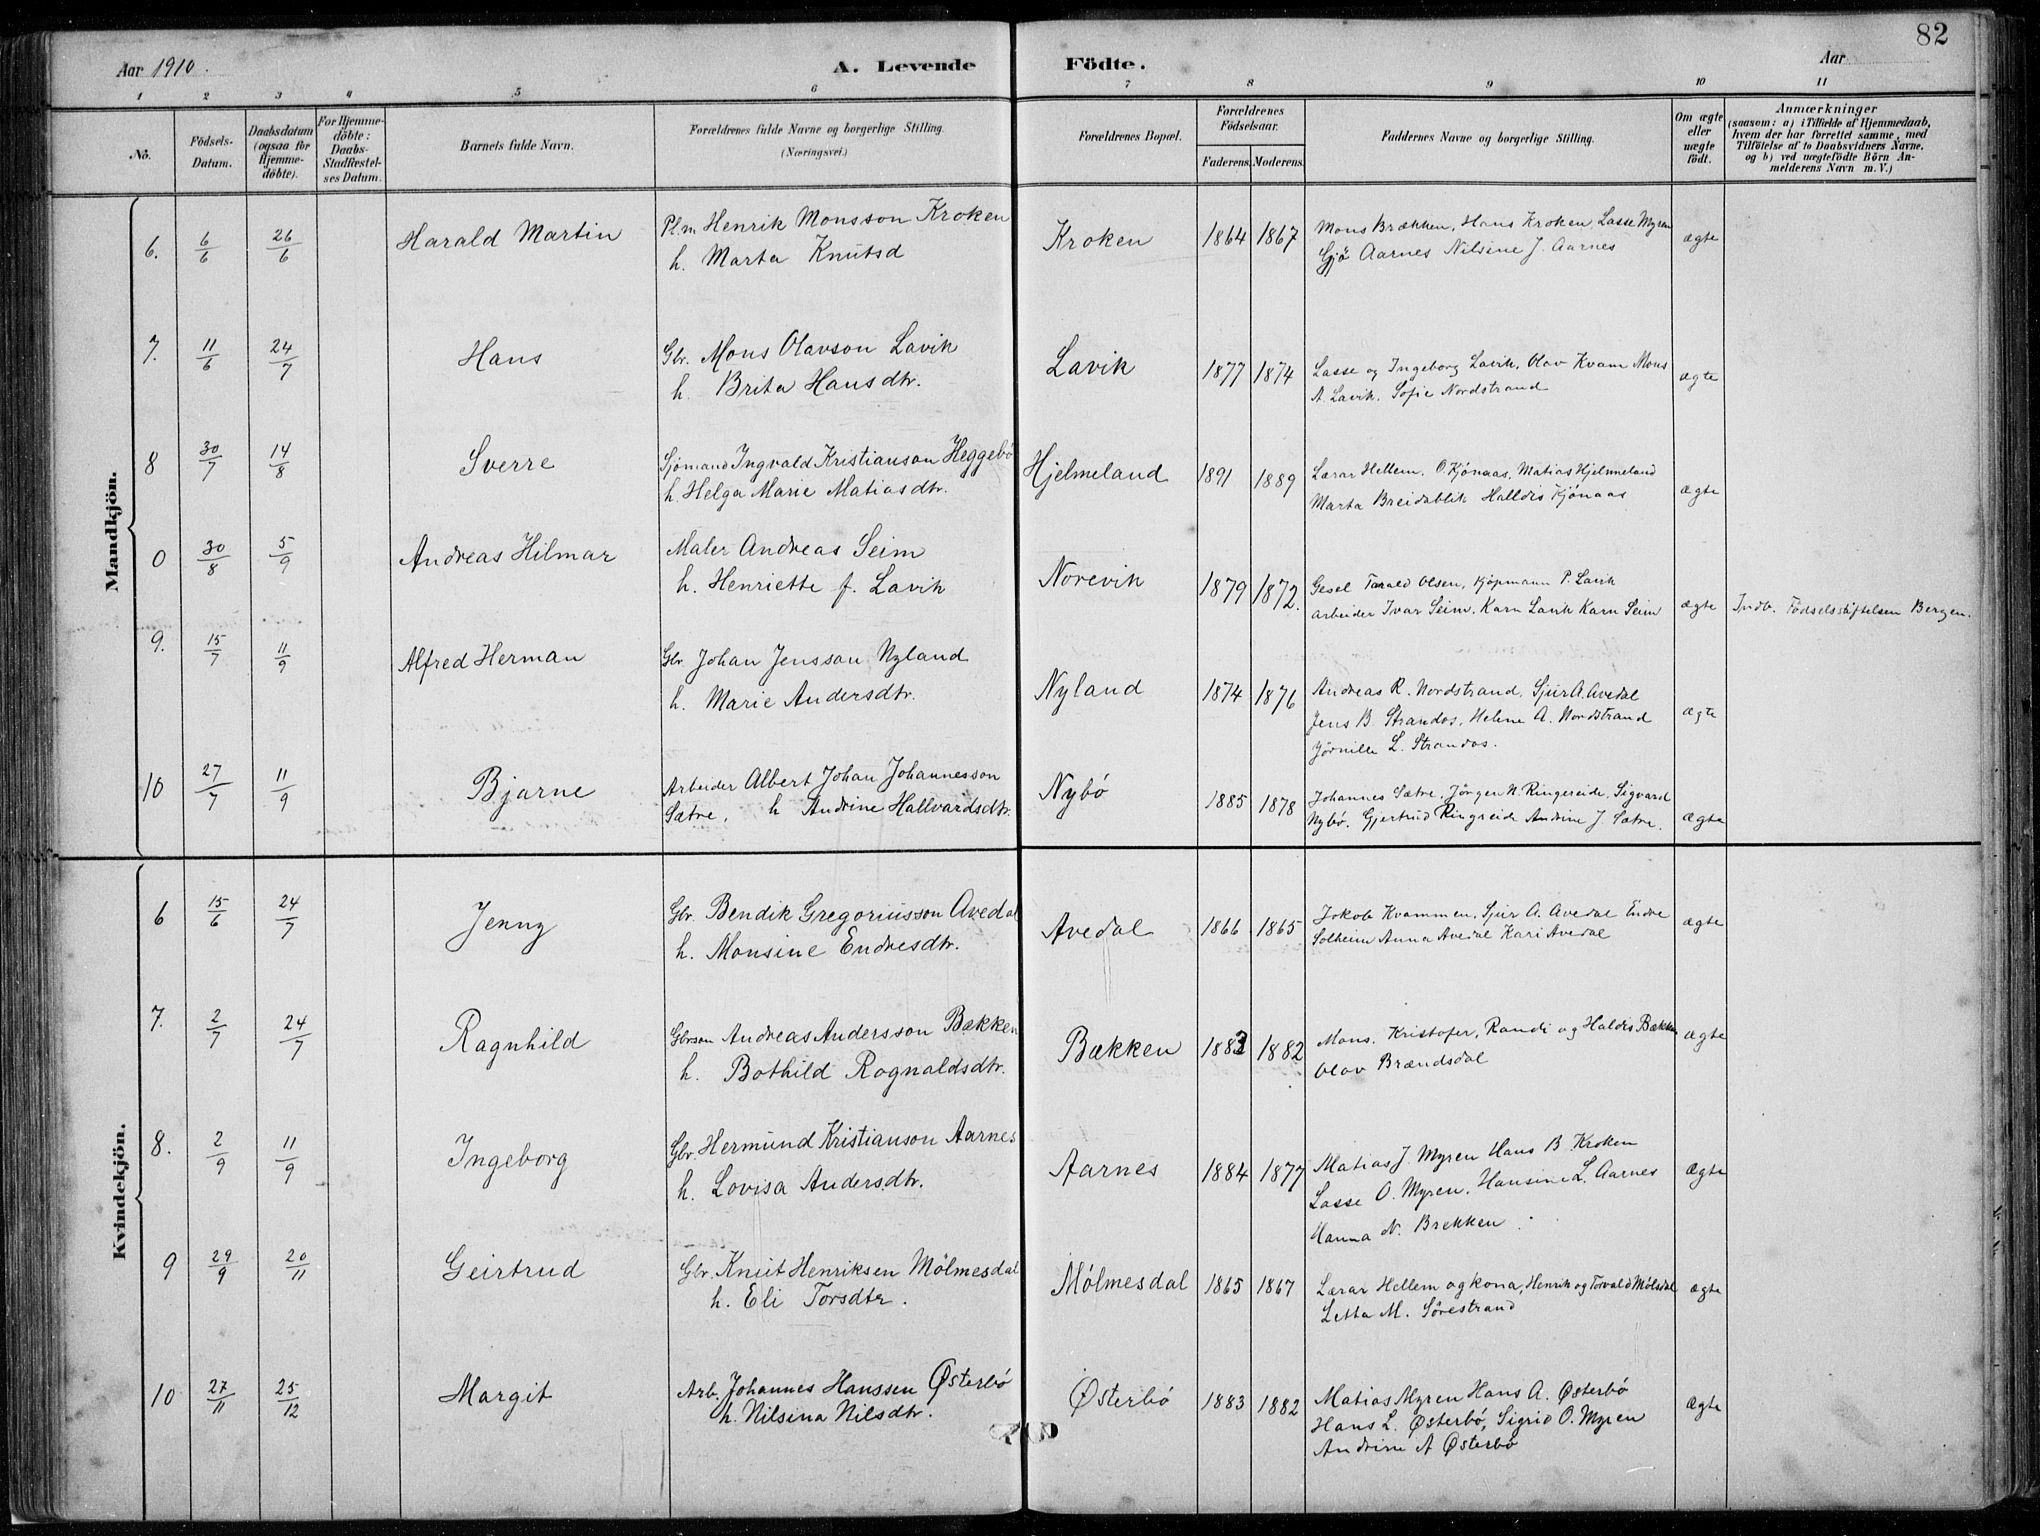 82
Aar 1910.
A. Levende Födte.
Aar
1 2 3 4 5 6 7 8 9 10 11
No.
Födsels-Datum.
Daabsdatum (ogsaa for Hjemme-döbte).
For Hjemme-döbte: Daabs-Stadfæstel-ses Datum.
Barnets fulde Navn.
Forældrenes fulde Navne og borgerlige Stilling.
(Næringsvei.)
Forældrenes Bopæl.
Forældrenes Födselsaar.
Faderens. Moderens.
Faddernes Navne og borgerlige Stilling.
Om ægte eller uægte födt.
Anmærkninger
(saasom: a) i Tilfælde af Hjemmedaab,
hvem der har forrettet samme, med
Tilföielse af to Daabsvidners Navne.
og b) ved uægtefödte Börn An-
melderens Navn m. V.)
Mandkjön.
6. 6/6 26/6 Harald Martin Plm Henrik Monsson Kroken
h. Marta Knutsd
Kroken 1864 1867 Mons Brækken, Hans Kroken, Lasse Myren
Gjö Aarnes Nilsine J. Aarnes
ægte
7. 11/6 24/7 Hans Gbr. Mons Olavson Lavik
h. Brita Hansdtr.
Lavik 1877 1874 Lasse og Ingeborg Lavik, Olav Kvam Mons
A. Lavik. Sofie Nordstrand
ægte
8 30/7 14/8 Sverre Sjömand Ingvald Kristianson Heggebö
h. Helga Marie Matiasdtr.
Hjelmeland 1891 1889 Lærar Hellem. O. Kjönaas, Matias Hjelmeland
Marta Breidablik Halldis Kjönaas
ægte
0 30/8 5/9 Andreas Hilmar Maler Andreas Seim
h. Henriette f. Lavik
Norevik 1879 1872. Gesel Tarald Olsen, Kjøpmann P. Lavik
arbeider Ivar Seim, Karn Lavik Karn Seim
ægte Indb. Födselsstiftelsen Bergen.
9. 15/7 11/9 Alfred Herman Gbr. Johan Jensson Nyland
h. Marie Andersdtr.
Nyland 1874 1876 Andreas R. Nordstrand, Sjur A. Avedal
Jens B. Strandos, Helene A. Nordstrand
L. Strandos.
ægte
10 27/7 11/9 Bjarne Arbeider Albert Johan Johannesson
Sætre, h Andrine Hallvardsdtr.
Nybö 1885 1878 Johannes Sætre, Jörgen N. Ringereide, Sigvard
Nybö. Gjertrud Ringreide Andrine J. Sætre.
ægte
Kvindekjön.
6 15/6 24/7 Jenny Gbr. Bendik Gregoriusson Avedal
h. Monsine Endresdtr.
Avedal 1866 1865 Jokob Kvammen, Sjur A. Avedal Endre
Solheim Anna Avedal Kari Avedal
ægte
7. 2/7 24/7 Ragnhild Gbrson Andreas Andersson Bækken
h. Bothild Rognaldsdtr.
Bækken 1883 1882 Mons. Kristofer, Randi og Haldis Bækken
Olav Brændsdal
ægte
8. 2/9 11/9 Ingeborg Gbr. Hermund Kristianson Aarnes
h. Lovisa Andersdtr.
Aarnes 1884 1877 Matias J. Myren Hans B. Kroken
Lasse O. Myren, Hansine L. Aarnes
Hanna N. Brekken
ægte
9 29/9 20/11 Geirtrud Gbr. Knut Henriksen Mölmesdal
h. Eli Torsdtr.
Mölmesdal 1865 1867 Lærar Hellem og kona, Henrik og Torvald Mölsdal
Letta M. Sörestrand
ægte
10 27/11 25/12 Margit Arb. Johannes Hanssen Østerbö
h. Nilsina Nilsdtr.
Østerbö 1883 1882 Matias Myren Hans A. Østerbö
Hans L. Østerbö, Sigrid O. Myren
Andrine A Østerbö
ægte